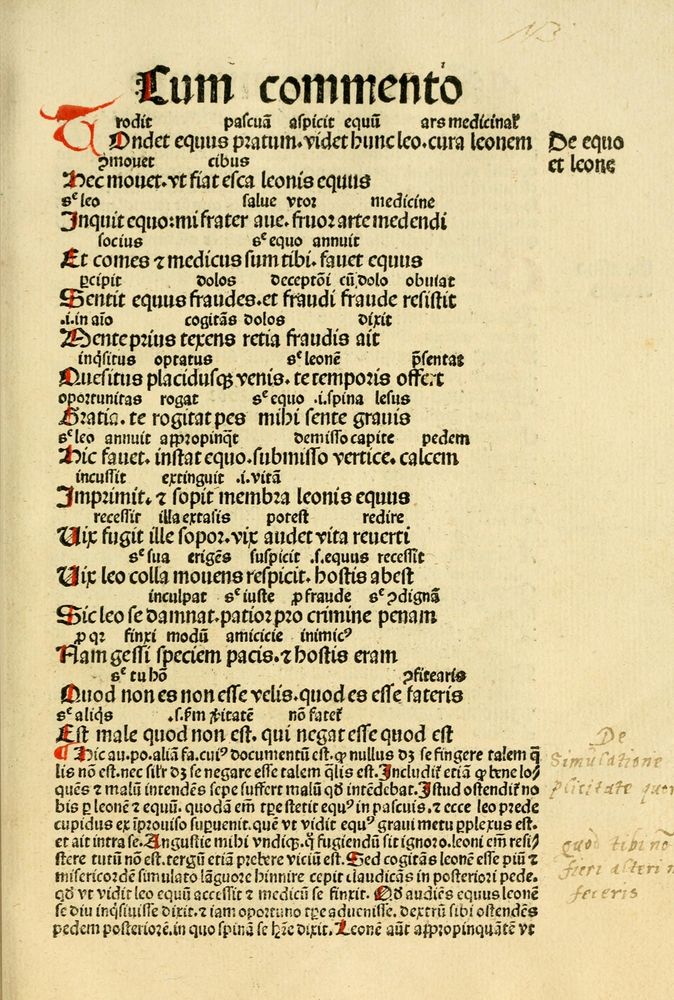 Cum commento
rodit pascuā aspicit equū ars medicinaꝉ
TOndet equus pratum. videt hunc leo. cura leonem
De equo
et leone
ꝓmouet cibus
Hec mouet. vt fiat esca leonis equus
sᶜ leo salue vtor medicine
Inquit equo: mi frater aue. fruor arte medendi
socius sᶜ equo annuit
Et comes ⁊ medicus sum tibi. fauet equus
ꝑcipit dolos deceptōi cū dolo obuiat
Sentit equus fraudes. et fraudi fraude resistit
.i. in aīo cogitās dolos dixit
Mente prius texens retia fraudis ait
inq̄situs optatus sᶜ leonē p̄sentat
Quesitus placidusqꝫ venis. te temporis offert
oportunitas rogat sᶜ equo .i. spina lesus
Gratia. te rogitat pes mihi sente grauis
sᶜ leo annuit appropinq̄t demisso capite pedem
Hic fauet. instat equo. submisso vertice. calcem
incussit extinguit .i. vitā
Imprimit. ⁊ sopit membra leonis equus
recessit illa extasis potest redire
Uix fugit ille sopor. vix audet vita reuerti
sᶜ sua erigēs suspicit .s. equus recessit
Uix leo colla mouens respicit. hostis abest
inculpat sᶜ iuste ꝓ fraude sᶜ ꝯdignā
Sic leo se damnat. patior pro crimine penam
ꝓ qꝛ finxi modū amicicie inimicꝰ
Nam gessi speciem pacis. ⁊ hostis eram
sᶜ tu hō ꝯfitearis
Quod non es non esse velis. quod es esse fateris
sᶜ aliq̄s .s. ẜm v̓itatē nō fateꝉ
Est male quod non est. qui negat esse quod est
¶ Hic au. po. aliā fa. cuiꝰ documentū est. ꝙ nullus dꝫ se fingere talem q̄
lis nō est. nec silꝉ dꝫ se negare esse talem q̄lis est. Includiꝉ etiā ꝙ bene lo⸗
quēs ⁊ malū intendēs sepe suffert malū qd̄ intēdebat. Istud ostendiꝉ no
bis ꝑ leonē ⁊ equū. quodā em̄ tꝑe stetit equꝰ in pascuis. ⁊ ecce leo prede
cupidus ex īprouiso suꝑuenit. quē vt vidit equꝰ graui metu ꝑplexus est.
et ait intra se. Angustie mihi vndiqꝫ. q̄ fugiendū sit ignoro. leoni em̄ resi⸗
stere tutū nō est. tergū etiā prebere viciū est. Sed cogitās leonē esse piū ⁊
misericordē simulato lāguore hinnire cepit claudicās in posteriori pede.
qd̄ vt vidit leo equū accessit ⁊ medicū se finxit. Qd̄ audiēs equus leonē
se diu inq̄siuisse dixit. ⁊ iam oportuno tꝑe aduenisse. dextrū sibi ostendēs
pedem posteriorē. in quo spinā se hr̄e dixit. Leonē aūt appropinquātē vt
De
Simulatione
quod tibi nō
fieri alteri n
feceris